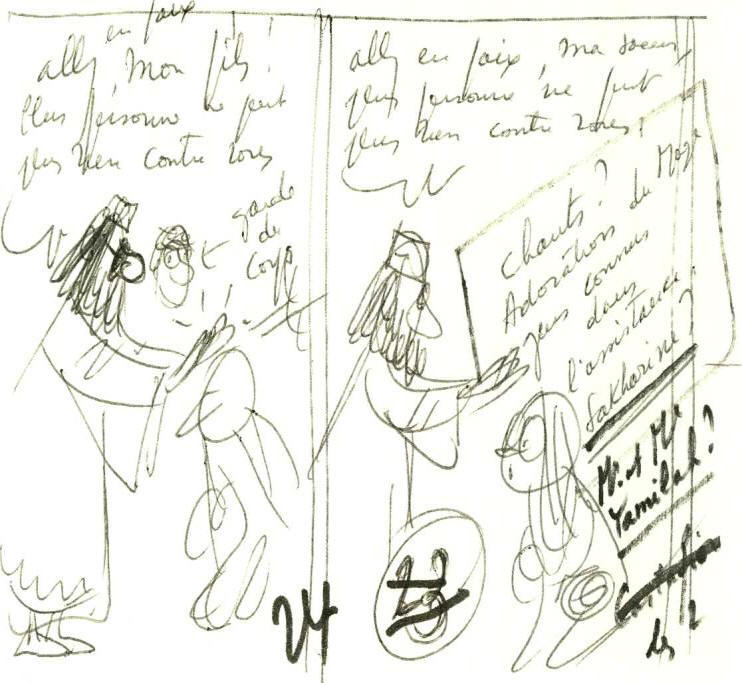 en paix
allez, mon fils !
Plus personne ne peut
plus rien contre vous
garde
du
corps
24
allez en paix, ma soeur,
plus personne ne peut
plus rien contre vous !
Chants ?
Adoration du Mage
gens connus
dans
l'assistance.
Sakharine ?
Mr. et Me
Yamilah ?
les 2